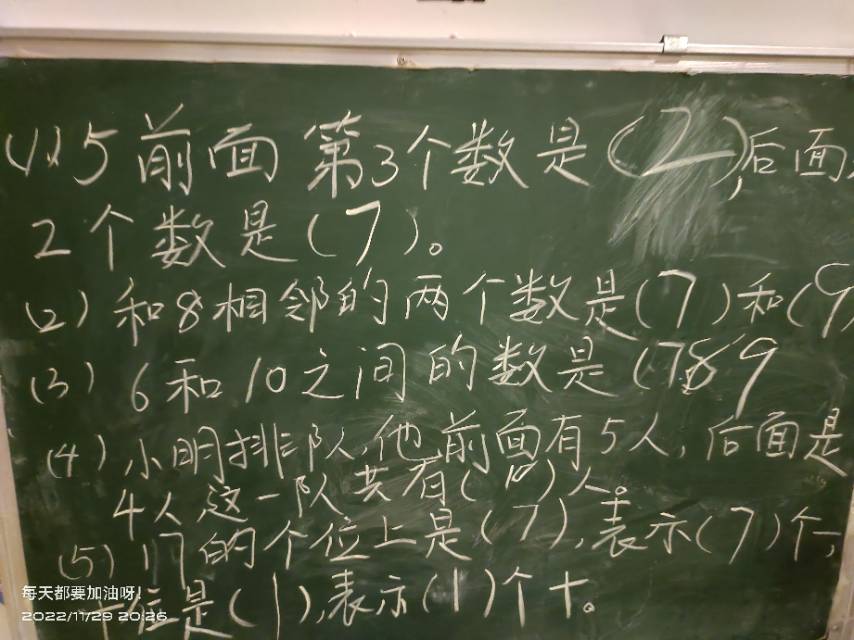 (1) 5前面第3个数是(2),后面
2个数是(7)。
(2) 和8相邻的两个数是(7)和(9)
(3) 6和10之间的数是(789
(4) 小明排队,他前面有5人,后面是
4人这一队共有(10)人。
(5) 17的个位上是(7),表示(7)个一,
十位是(1),表示(1)个十。
每天都要加油呀!
2022/11/29 20:26